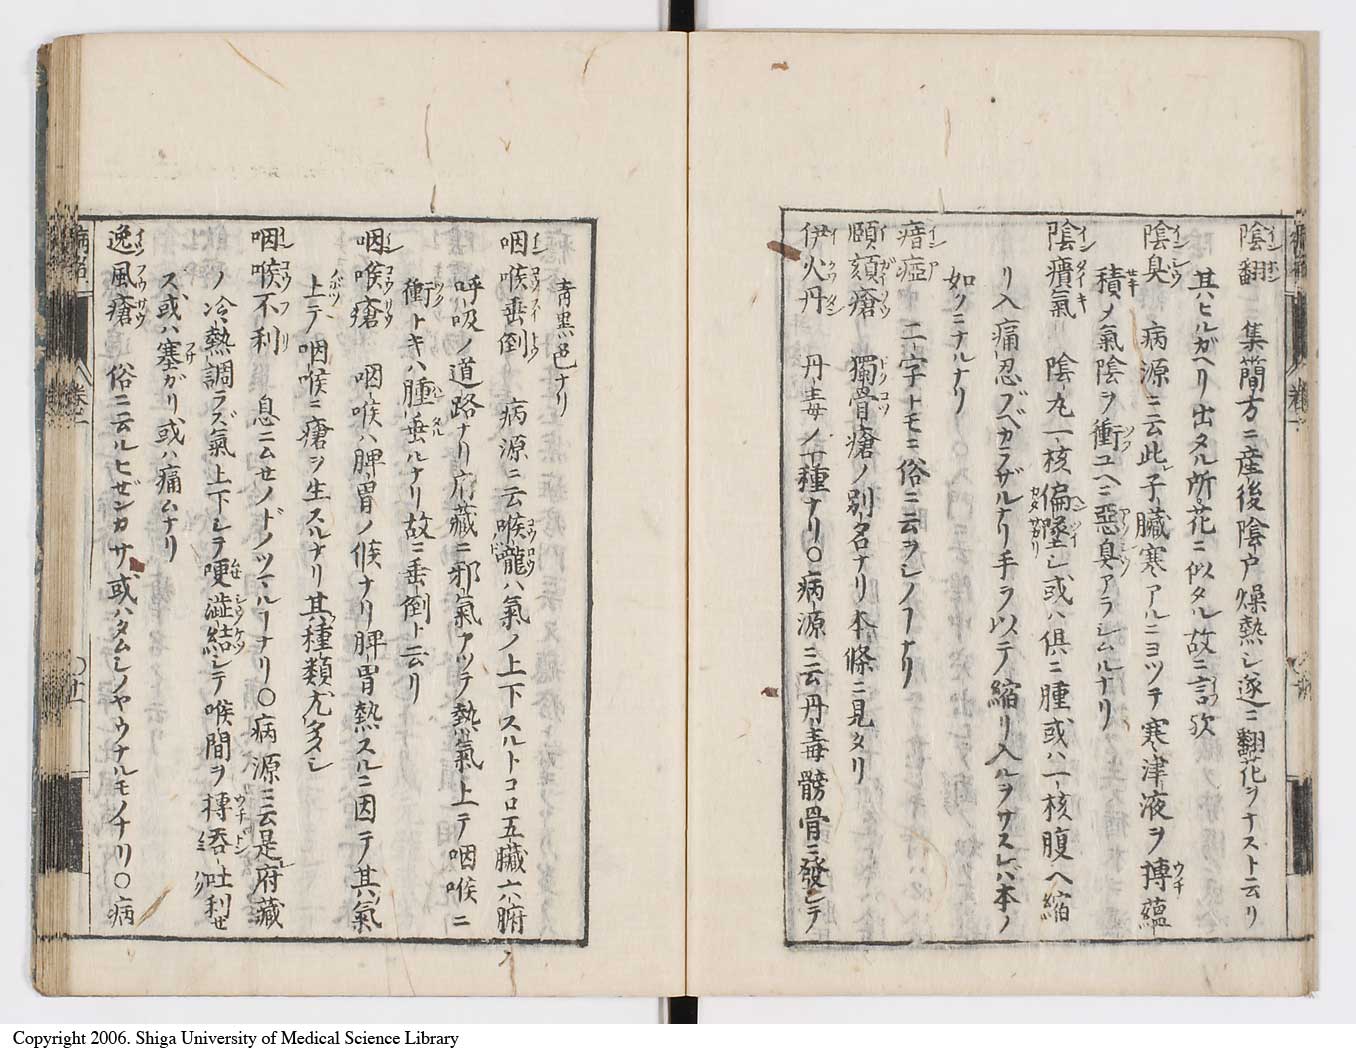 陰翻 集簡方ニ産後陰戸燥熱シ遂ニ翻花ヲナスト云リ
其ヒルガヘリ出タル所花ニ似タル故ニ言欤
陰臭 病源ニ云此子臓寒アルニヨツテ寒津液ヲ搏蘊
積ノ氣陰ヲ衝ユヘニ惡臭アラシムルナリ
陰㿉氣 陰丸一核偏墜シ或ハ倶ニ腫或ハ一核腹ヘ縮
リ入痛忍ブベカラザルナリ手ヲ以テ縮リ入ルヲサスレバ本ノ
如クニナルナリ
瘖瘂 二字トモニ俗ニ云ヲシノナリ
頤頦瘡 獨骨瘡ノ別名ナリ本條ニ見タリ
伊火丹 丹毒ノ一種ナリ〇病源ニ云丹毒髈骨ニ發シテ
青黒色ナリ
咽喉垂倒 病源ニ云喉嚨ハ氣ノ上下スルトコロ五臓六腑
呼吸ノ道路ナリ府藏ニ邪氣アツテ熱氣上テ咽喉ニ
衝トキハ腫垂ルナリ故ニ垂倒ト云リ
咽喉瘡 咽喉ハ脾胃ノ候ナリ脾胃熱スルニ因テ其氣
上テ咽喉ニ瘡ヲ生スルナリ其種類尤多シ
咽喉不利 息ニムセノドノツマルナリ〇病源ニ云是府藏
ノ冷熱調ラズ氣上下シテ哽澁結シテ喉間ヲ摶呑吐利せ
ス或ハ塞ガリ或ハ痛ムナリ
逸風瘡 俗ニ云ルヒゼンガサ或ハタムシノヤウナルモノナリ〇病
Copyright 2006. Shiga University of Medical Science Library